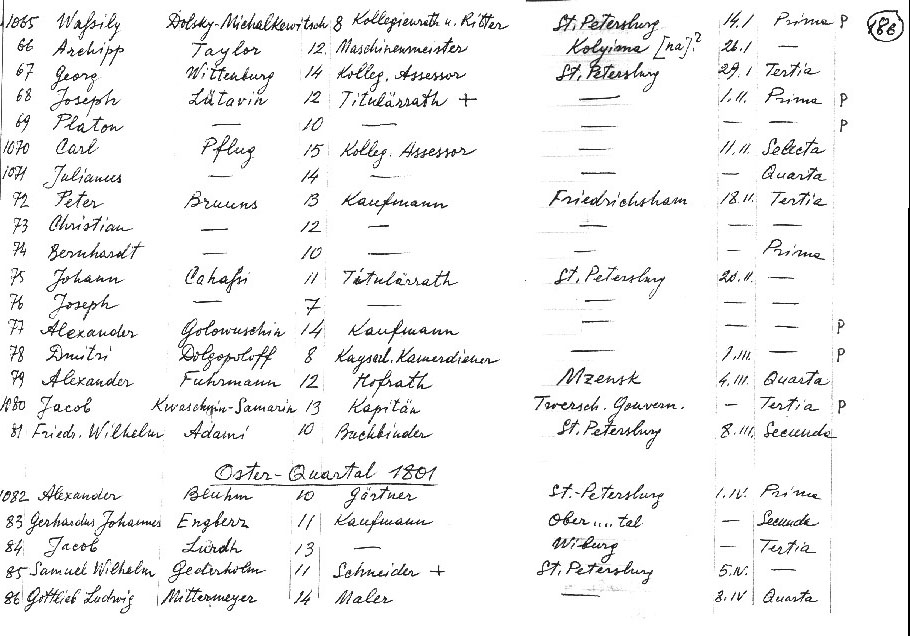 1065 Waßily Dolsky-Michalkewitsch 8 Kollegienrath u. Ritter St. Petersburg 14.I Prima P 186
66 Archipp Taylor 12 Maschinenmeister Kolyima [na]? 26.I —
67 Georg Wittenburg 14 Kolleg. Assessor St. Petersburg 29.I Tertia
68 Joseph Lütavin 12 Titulärrath + — 1.II. Prima P
69 Platon — 10 — — — — P
1070 Carl Pflug 15 Kolleg. Assessor — 11.II. Selecta
1071 Julianus — 14 — — — Quarta
72 Peter Bruuns 13 Kaufmann Friedrichsham 18.II. Tertia
73 Christian — 12 — — — —
74 Bernhardt — 10 — — — Prima
75 Johann Cahaßi 11 Titulärrath St. Petersburg 20.II. —
76 Joseph — 7 — — — —
77 Alexander Golowuschin 14 Kaufmann — — — P
78 Dmitri Dolgopoloff 8 Kayserl. Kamerdiener — 1.III. — P
79 Alexander Fuhrmann 12 Hofrath Mzensk 4.III. Quarta
1080 Jacob Kwaschnin-Samarin 13 Kapitän Twersch. Gouvern. — Tertia P
81 Friedr. Wilhelm Adami 10 Buchbinder St. Petersburg 8.III. Secunda
Oster-Quartal 1801
1082 Alexander Bluhm 10 Gärtner St.-Petersburg 1.IV. Prima
83 Gerhardus Johannes Engberz 11 Kaufmann Ober....tal — Secunda
84 Jacob Lürdh 13 — Wiburg — Tertia
85 Samuel Wilhelm Gederholm 11 Schneider + St. Petersburg 5.IV. —
86 Gottlieb Ludwig Mittermeyer 14 Maler — 8.IV Quarta